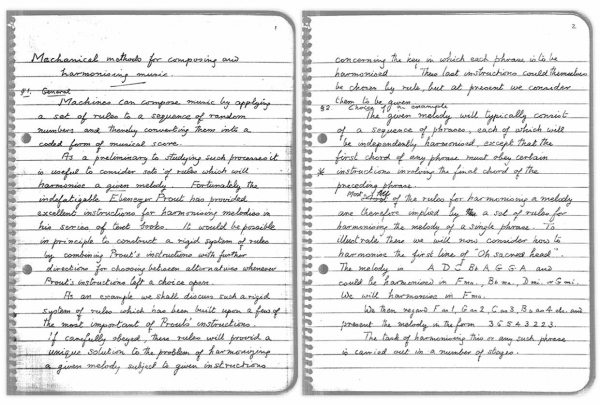 1
Mechanical methods for composing and
harmonising music.
§1. General
Machines can compose music by applying
a set of rules to a sequence of random
numbers and thereby converting them into a
coded form of musical score.
As a preliminary to studying such processes it
is useful to consider sets of rules which will
harmonise a given melody. Fortunately the
indefatigable Ebenezer Prout has provided
excellent instructions for harmonising melodies in
his series of text books. It would be possible
in principle to construct a rigid system of rules
by combining Prout's instructions with further
directions for choosing between alternatives whenever
Prout's instructions left a choice open.
As an example we shall discuss such a rigid
system of rules which has been built upon a few of
the most important of Prout's instructions.
If carefully obeyed, these rules will provide a
unique solution to the problem of harmonizing
a given melody subject to given instructions
2
concerning the key in which each phrase is to be
harmonised. These last instructions could themselves
be chosen by rule, but at present we consider
them to be given.
§2. Choice of an example
The given melody will typically consist
of a sequence of phrases, each of which will
be independently harmonised, except that the
first chord of any phrase must obey certain
* instructions involving the final chord of the
preceding phrase.
Most of the
of the rules for harmonising a melody
are therefore implied by a set of rules for
harmonising the melody of a single phrase. To
illustrate these we will now consider how to
harmonise the first line of "Oh sacred head".
The melody is A D C Bb A G G A and
could be harmonised in F ma., Bb ma., D mi. or G mi.
We will harmonise in F ma.
We then regard F as 1, G as 2, C as 5, Bb as 4 etc. and
present the melody in the form 3 6 5 4 3 2 2 3.
The task of harmonising this or any such phrase
is carried out in a number of stages.